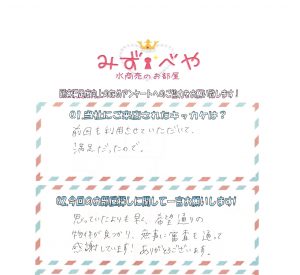 みずべや
水商売のお部屋
Q1.当社にご来店されたキッカケは?
前回も利用させていただいて、
満足だったので。
Q2.今回のお部屋探しに関して一言お願いします!
思っていたよりも早く、希望通りの
物件が見つかり、無事に審査も通って
感謝しています! ありがとうございます。